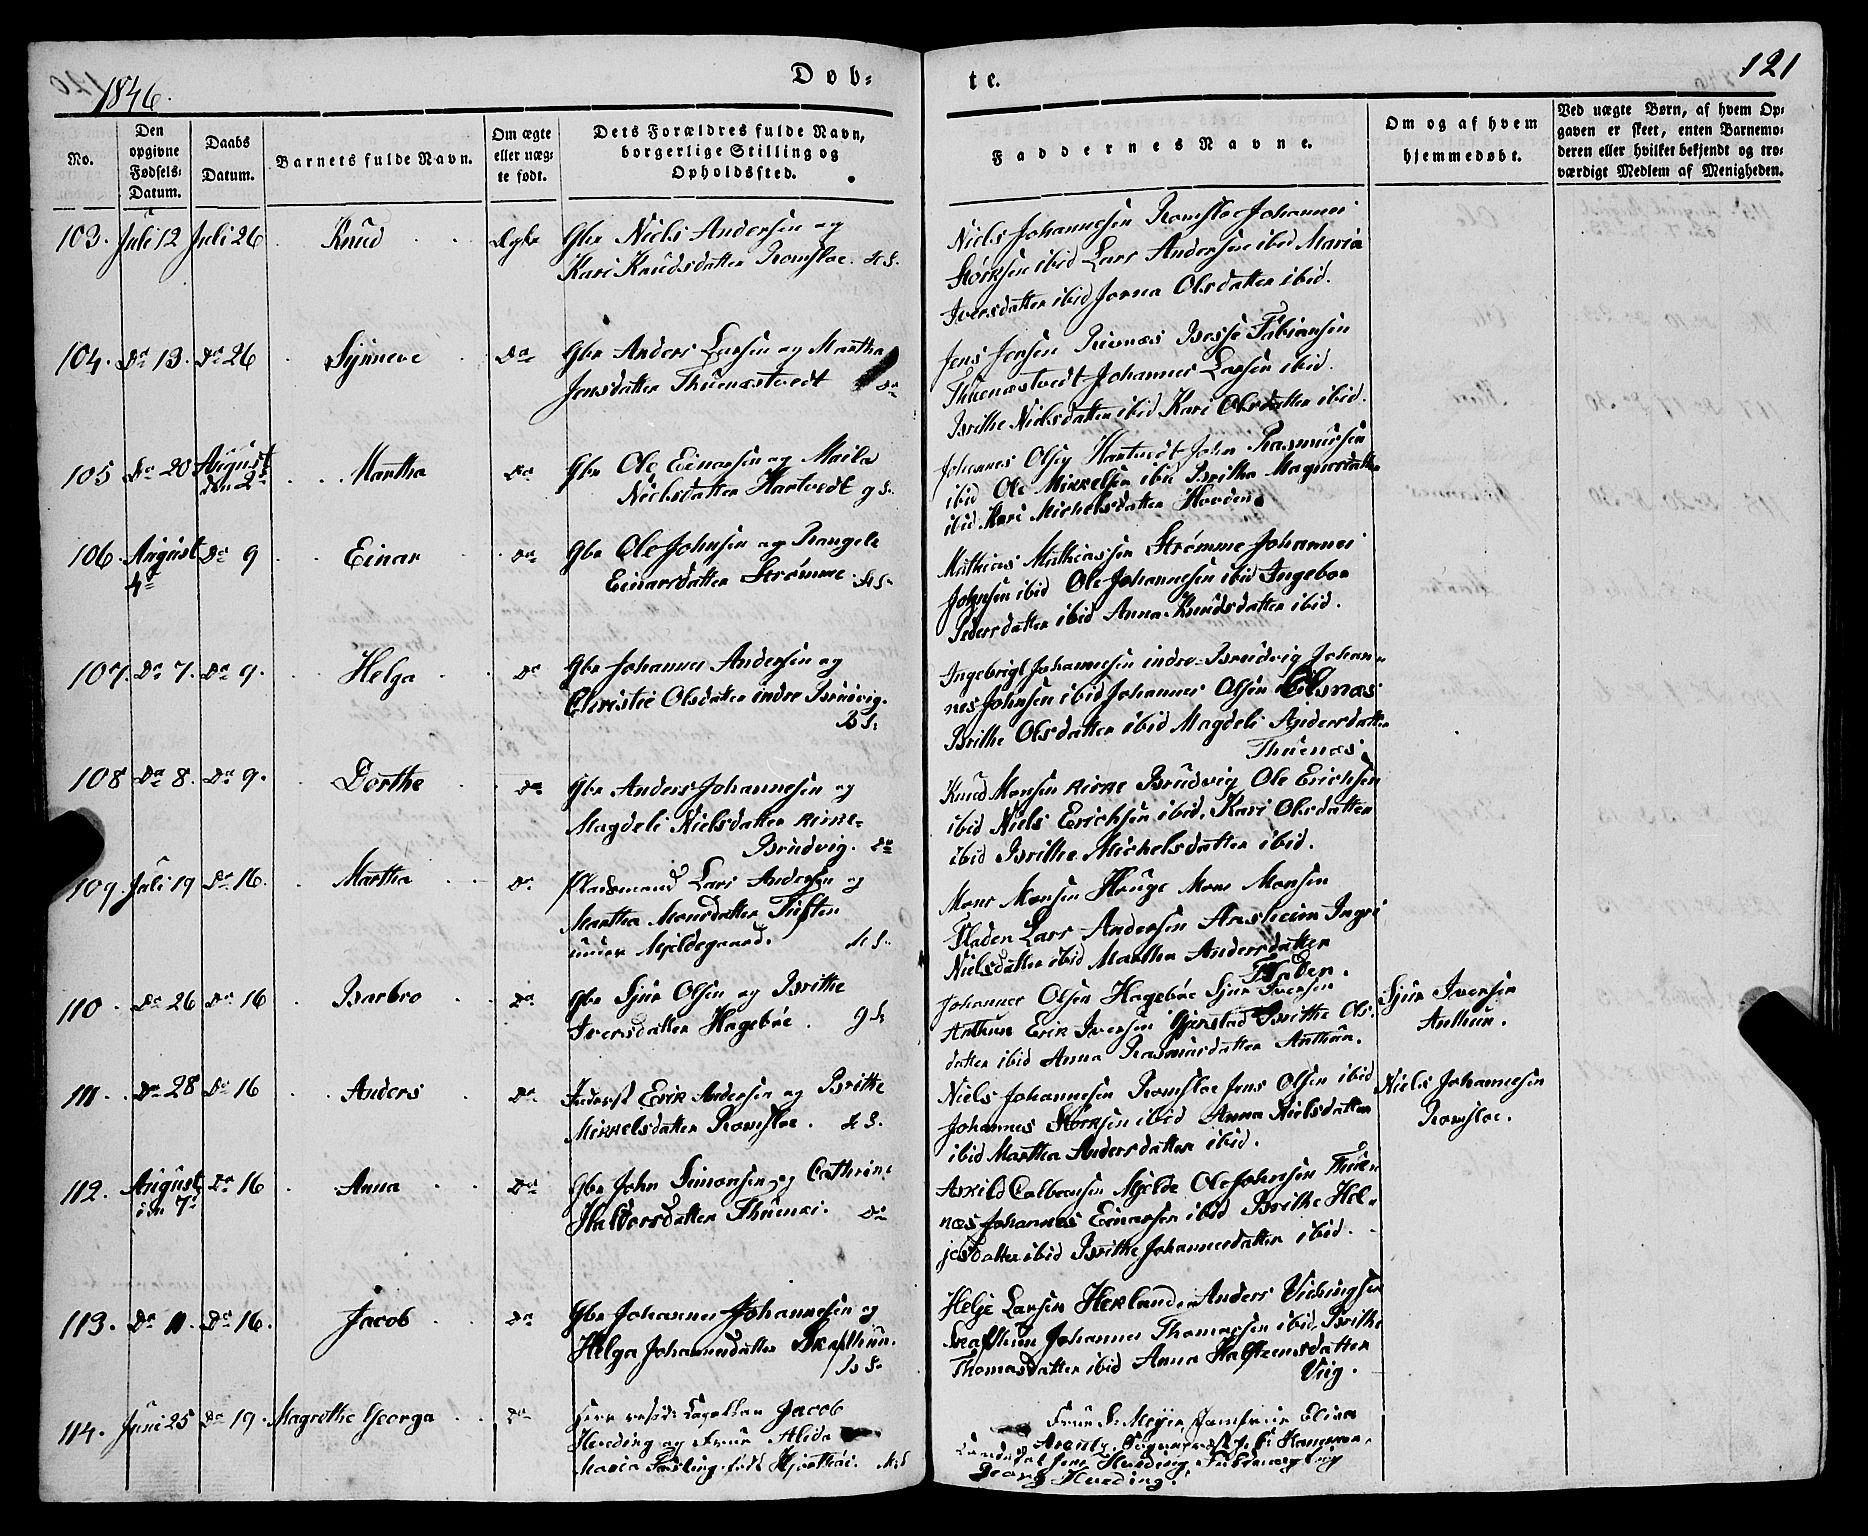 1846.
Døb-
te.
121
No.
Den opgivne Fødsels-Datum.
Daabs Datum.
Barnets fulde Navn.
Om ægte eller uægte født.
Dets Forældres fulde Navn, borgerlige Stilling og Opholdssted.
Faddernes Navne.
Om og af hvem hjemmedøbt.
Ved uægte Børn, af hvem Opgaven er skeet, enten Barnemoderen eller hvilket bekjendt og troværdigt Medlem af Menigheden.
103. Juli 12 Juli 26 Knud Ægte Gbr Niels Andersen og
Kari Knudsdatter Romsloe. H S.
Niels Johannesen Romsloe Johannes
Størksen ibid Lars Andersen ibid Maria
Iversdatter ibid Jorna Olsdatter ibid.
104. Do 13. Do 26 Synneve Do Gbr Anders Larsen og Martha
Jensdatter Thuenæstvedt Do
Jens Jensen Revnæs Basse Fabiansen
Thuenæstvedt Johannes Larsen ibid.
Brithe Nielsdatter ibid Kari Olsdatter ibid.
105 Do 20 August den 2d Martha Do Gbr Ole Einarsen og Maila
Nielsdatter Hartvedt g S.
Johannes Olsen Hartvedt John Rasmussen
ibid Ole Mikkelsen ibid Britha Magnesdatter
ibid Kari Michelsdatter Hovden
106 August 4d Do 9 Einar Do Gbr Ole Johnsen og Rangele
Einarsdatter Strømme H S.
Mathias Mathiassen Strømme Johannes
Johnsen ibid Ole Johannesen ibid Ingebor
Pedersdatter ibid Anna Knudsdatter ibid.
107. Do 7. Do 9. Helga Do Gbr Johannes Andersen og
Christie Olsdatter indre Bruvig.
B S.
Ingebrigt Johannesen indre Brudvig Johan-
nes Johnsen ibid Johannes Olsen Olsnæs
Brithe Olsdatter ibid Magdeli Andersdatter
Thuenæs
108 Do 8. Do 9. Dorthe Do Gbr Anders Johannesen og
Magdeli Nielsdatter Kirke-
Brudvig. Do
Knud Monsen Kirke Brudvig Ole Erichsen
ibid Niels Erichsen ibid. Kari Olsdatter
ibid Brithe Michelsdatter ibid.
109. Juli 19 Do 16. Martha Do Pladsmand Lars Andersen og
Martha Monsdatter Tuften
under Mjeldegaard. H S.
Mons Monsen Houge Mons Monsen
Fladen Lars Andersen Arnsheim Ingri
Nielsdatter ibid Martha Andersdatter
Fladen.
110 Do 26 Do 16 Barbro Do Gbr Sjur Olsen og Brithe
Iversdatter Hagebøe. g S
Johannes Olsen Hagebøe Sjur Iversen
Anthun Erik Iversen Gjerstad Brithe Ols-
datter ibid Anna Rasmusdatter Anthun.
Sjur Iversen
Anthun.
111. Do 28 Do 16 Anders Do Inderst Erik Andersen og Brithe
Mikkelsdatter Romsloe. H S.
Niels Johannesen Romsloe Jens Olsen ibid
Johannes Størksen ibid Anna Nielsdatter
ibid Martha Andersdatter ibid.
Niels Johannesen
Romsloe.
112. August den 7d Do 16 Anna Do Gbr John Simonsen og Cathrine
Haldorsdatter Thuenæs. Do
Askild Colbensen Mjelde Ole Johnsen Thue-
næs Johannes Einarsen ibid Brithe Hel-
jesdatter ibid Brithe Johannesdatter ibid.
113. Do 11. Do 16. Jacob Do Gbr Johannes Johannesen og
Helga Johannesdatter Skafthun.
B S.
Helje Larsen Herland Anders Vichingsen
Skafthun Johannes Thomassen ibid. Brithe
Thomasdatter ibid Anna Halstensdatter
Viig.
114. Juni 25 Do 19. Magrethe Georga Do Herr resid: Capellan Jacob
Hveding og Frue Alida
Maria født
Frue Meyer Jomfrue Elisa
Hveding
Georg Hveding.